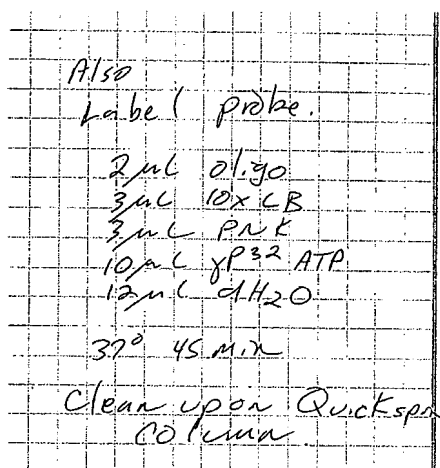 Also
Label probe.
2 µL oligo
3 µL 10x LB
3 µL PNK
10 µL γP32 ATP
12 µL dH2O
37° 45 min
Clean up on Quickspin
column.